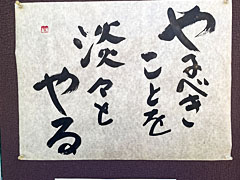 やるべき
ことを
淡々と
やる